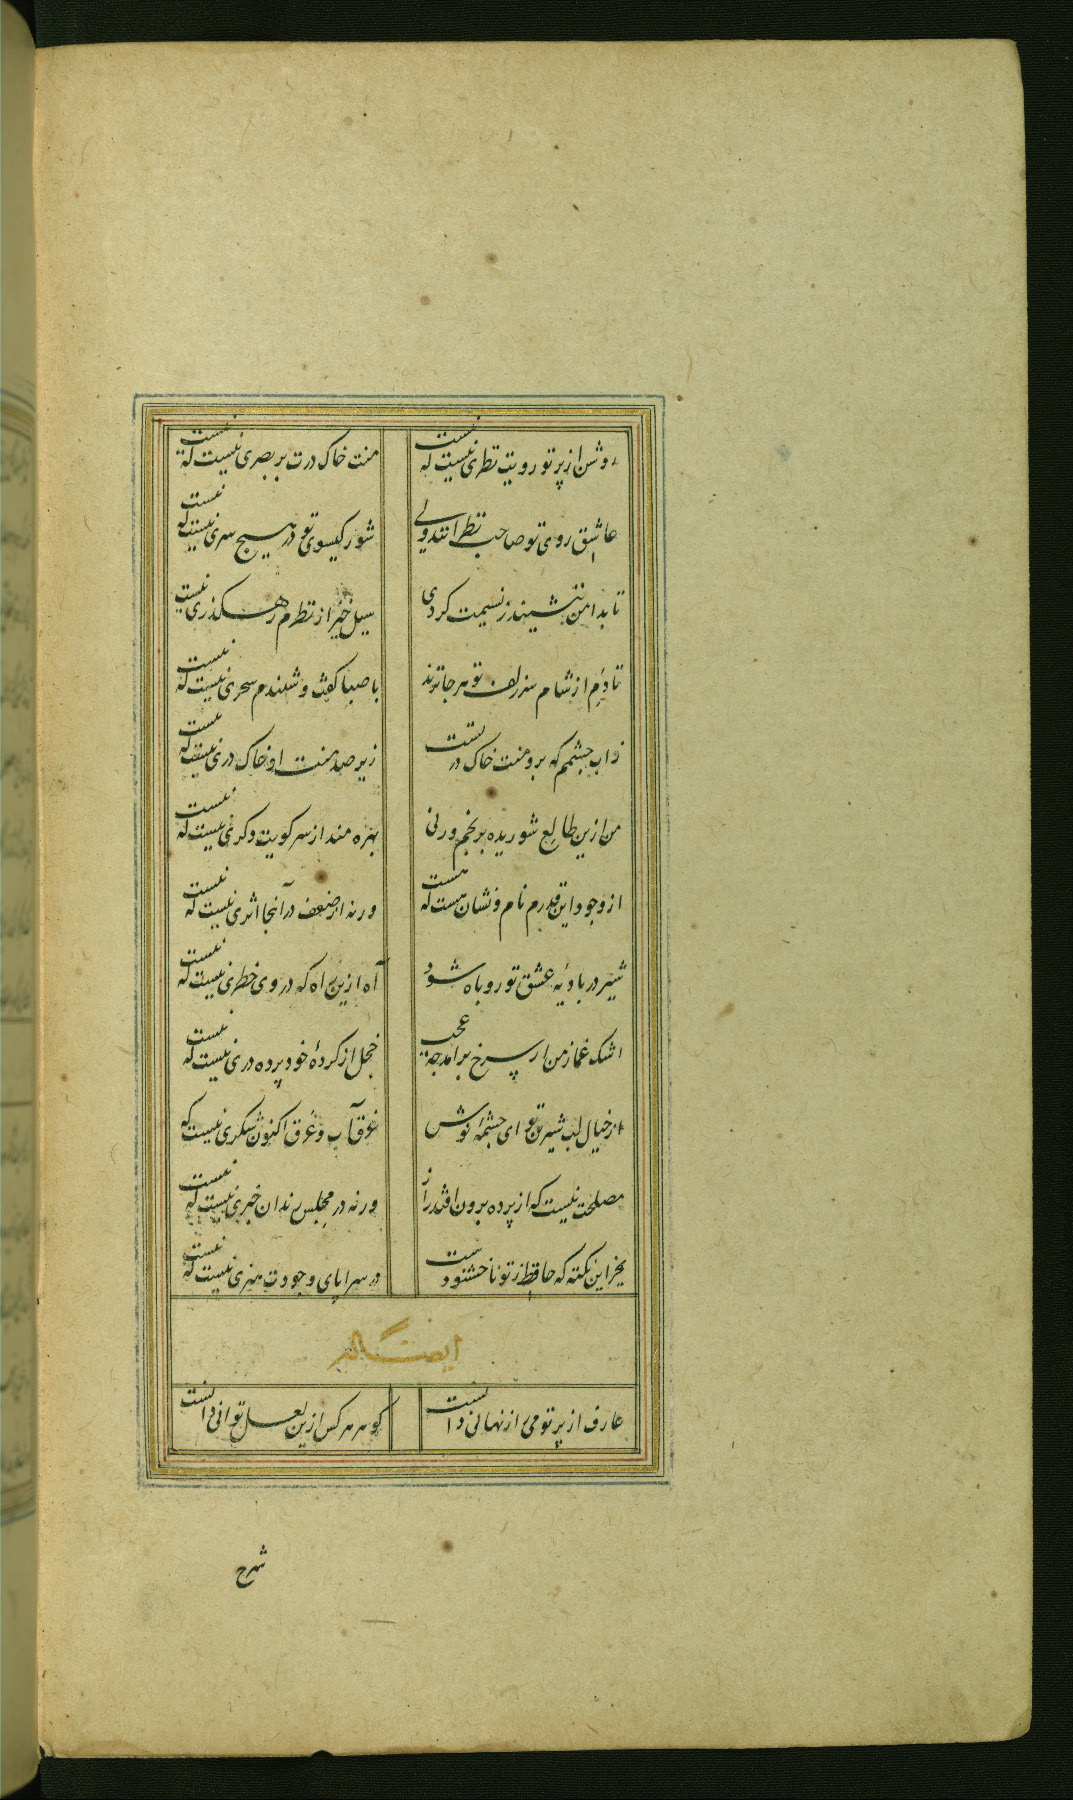 روشن از پرتو رویت نظری نیست که نیست منت خاک درت بر بصری نیست که نیست
عاشق روی تو صاحب نظرانند ولی شور کیسوی تو در هیچ سری نیست که نیست
تا بدامن ننشیند ز نسیمت کردی سیل خیز از نظرم رهکذری نیست
تا دم از شام سر زلف تو هر جا نزند با صبا کفت و شنندم سحری نیست که نیست
زاب چشمم که برو منت خاک در تست زیر صد منت او خاک دری نیست که نیست
من ازین طالع شوریده برنجم ورنی بهره مند از سر کویت دکری نیست که نیست
از وجود این قدرم نام و نشان هست که هست ورنه از ضعف در آنجا اثری نیست که نیست
شیر در بادیهٔ عشق تو روباه شود آه ازین راه که در وی خطری نیست که نیست
اشک غماز من ار سرخ برامد چه عجب خجل از کردهٔ خود پرده دری نیست که نیست
از خیال لب شیرین تو ای چشمهٔ نوش غرق آب و عرق اکنون شکری نیست که
مصلحت نیست که از پرده برون افتد راز ورنه در مجلس رندان خبری نیست که نیست
بجز این نکته که حافظ ز تو ناخشنودست در سراپای وجودت هنری نیست که نیست
ایضاً له
عارف از پرتو می راز نهانی دانست کوهر هر کس ازین لعل توانی دانست
شرح